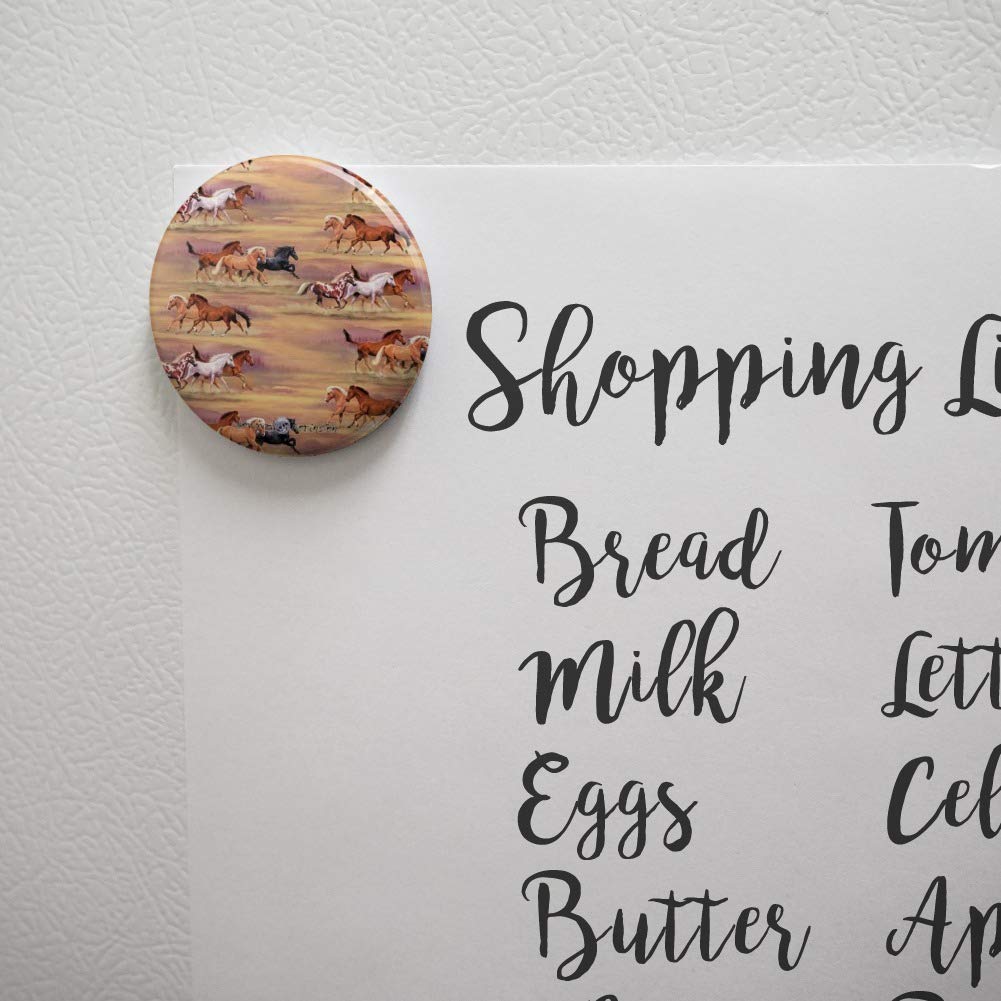 Shopping Li
Bread Tom
Milk Lett
Eggs Cel
Butter Ap